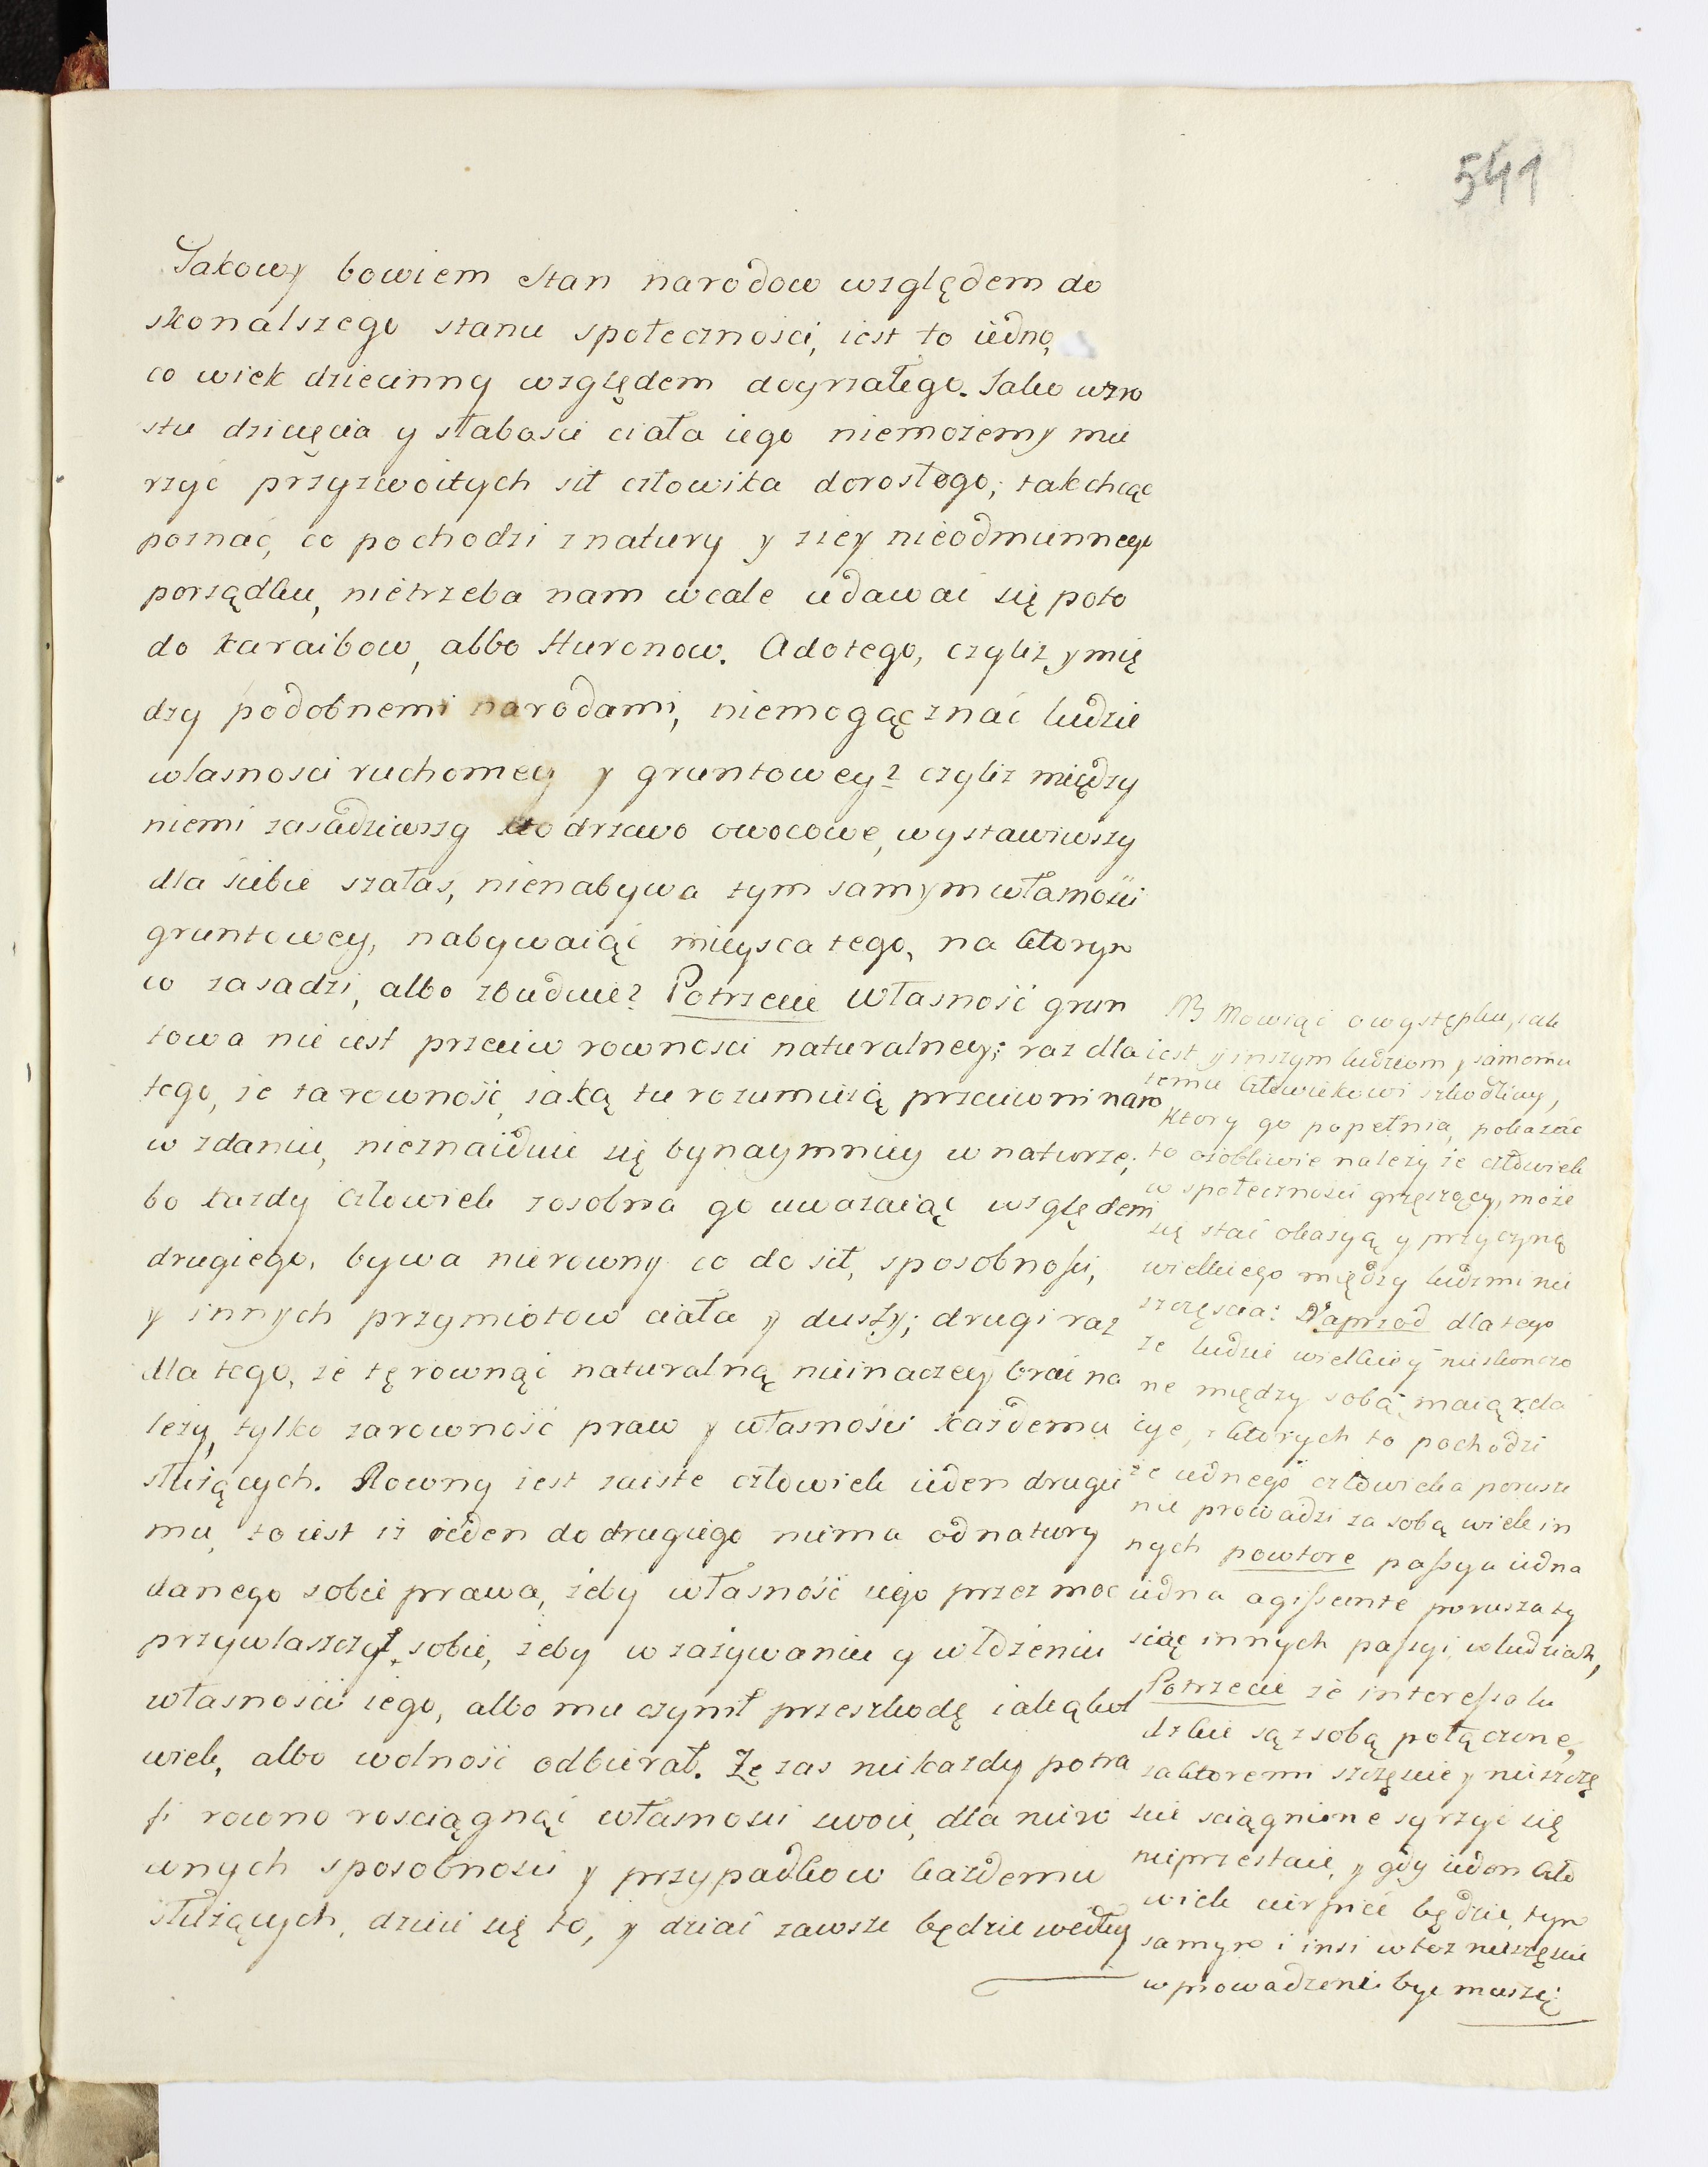 541
Takowy bowiem stan narodow względem do
skonalszego stanu społeczności, iest to iedno,
co wiek dziecinny względem doyrzałego. Jako wzro
stu dziecięcia y słabości ciała iego niemożemy mie
rzyć przyzwoitych sił człowieka dorosłego; tak chcąc
poznać, co pochodzi z natury y z iey nieodmiennego
porządku, nietrzeba nam wcale udawać się poto
do Karaibow, albo Huronow. A do tego, czyliż y mię
dzy podobnemi narodami, niemogą znać ludzie
własności ruchomey y gruntowey? czyliż między
niemi zasadziwszy kto drzewo owocowe, wystawiwszy
dla siebie szałas, nienabywa tym samym własności
gruntowey, nabywaiąc mieysca tego, na ktorym
co zasadzi, albo zbuduie? Potrzecie własność grun
towa nie iest przeciw rowności naturalney; raz dla
tego, że ta rowność, iaką tu rozumieią przeciwni nam
w zdaniu, nieznaiduie się bynaymniey w naturze;
bo każdy człowiek zosobna go uważaiąc względem
drugiego, bywa nierowny co do sił, sposobności,
y innych przymiotow ciała y duszy; drugi raz
dla tego, że tę rowność naturalną nieinaczey brać na
leży, tylko za rowność praw y własności każdemu
służących. Rowny iest zaiste człowiek ieden drugie
mu, to iest iż ieden do drugiego niema od natury
danego sobie prawa, żeby własność iego przez moc
przywłaszczył sobie, żeby w zażywaniu y włdżeniu
własności iego, albo mu czynił przeszkodę iakąkol
wiek, albo wolność odbierał. Że zas nie każdy potra
fi rowno rosciągnąć własności swoie, dla niero
wnych sposobności y przypadkow każdemu
służących, dzieie się to, y dziać zawsze będzie według
NB Mowiąc o występku, iak
iest y inszym ludziom y samemu
temu człowiekowi szkodliwy,
ktory go popełnia, pokazać
to osobliwie należy że człowiek
w społeczności grzeszący, może
się stać okazyą y przyczyną
wielkiego między ludzmi nie
szczęscia: Naprzod dla tego
że ludzie wielkie y nieskończo
ne między sobą maią rela
cye, z ktorych to pochodzi
że iednego człowieka porusze
nie prowadzi za sobą wiele in
nych powtore passya iedna
iedna agissante porusza ty
siąc innych passyi w ludziach,
Potrzecie że interessa lu
dzkie są z sobą połączone,
za ktoremi szczęscie y nieszczę
scie sciągnione syrzyć się
nieprzestaie, y gdy ieden czło
wiek cierpieć będzie, tym
samym i insi w toż nieszczęscie
wprowadzeni być muszą.